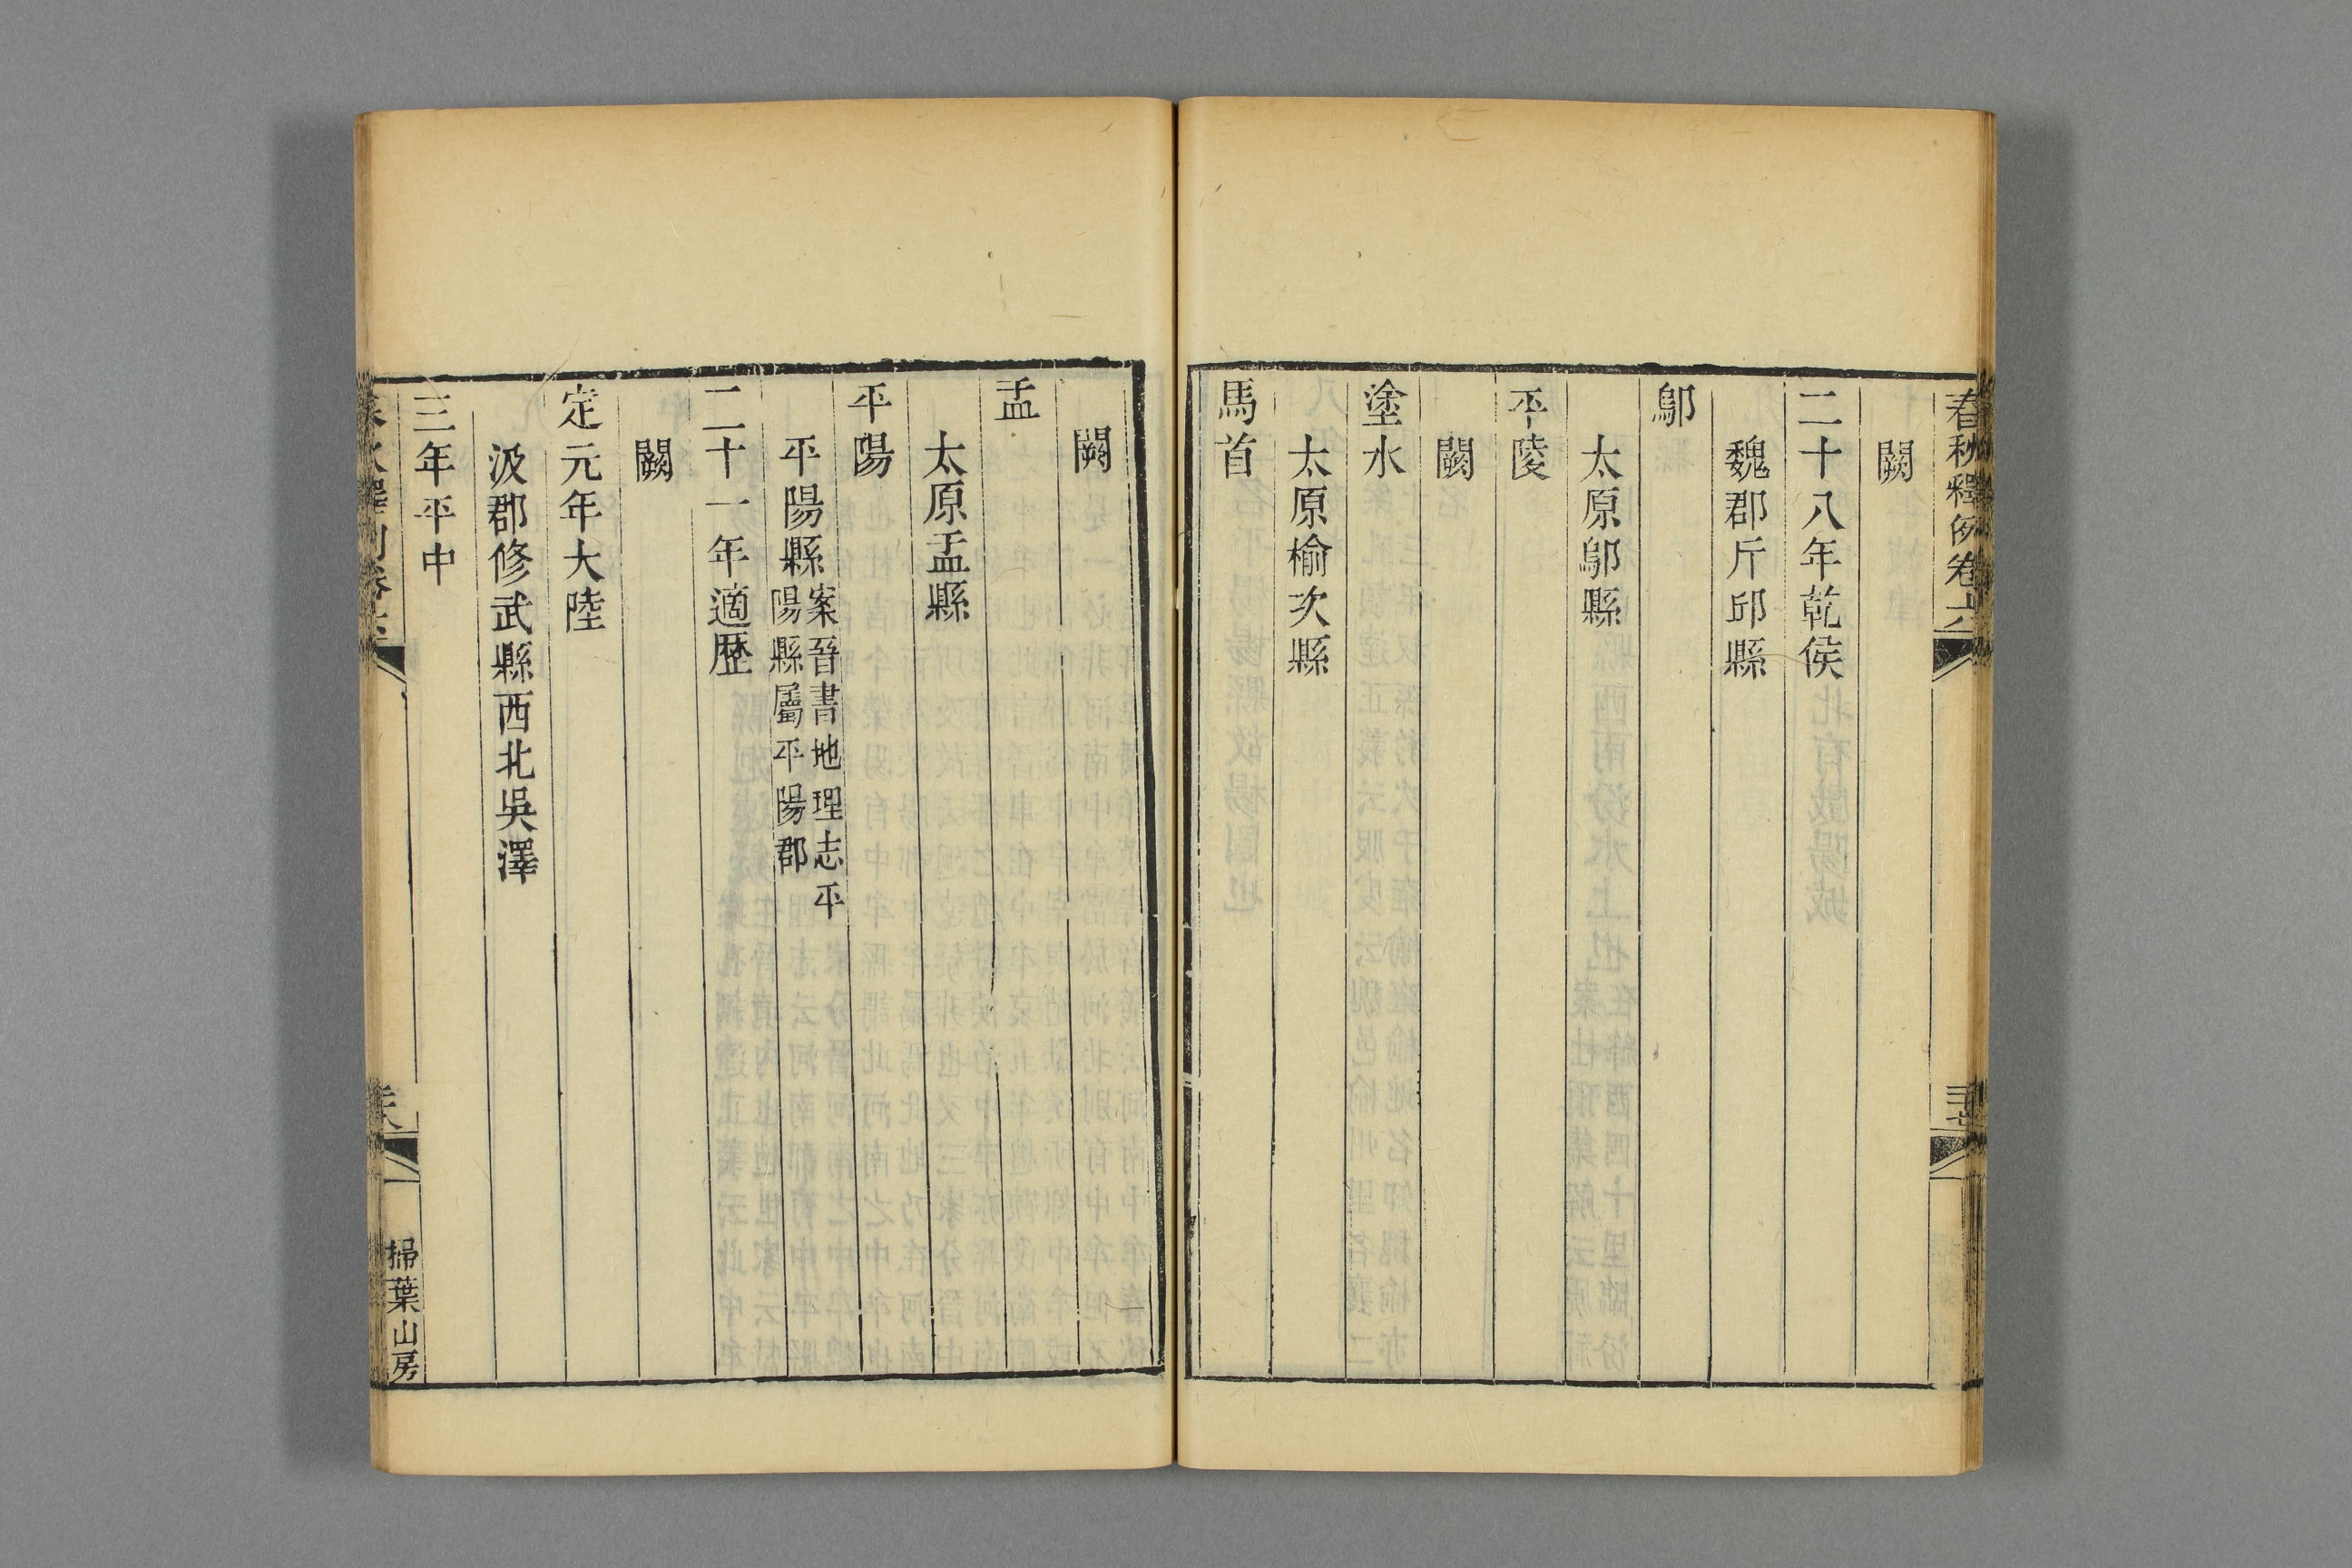 春秋釋例卷六
闕
二十八年乾侯
魏郡斤邱縣
鄔
太原鄔縣
平陵
闕
塗水
太原榆次縣
馬首
闕
盂
太原盂縣
平陽
平陽縣案晉書地理志平
陽縣屬平陽郡
二十一年適歷
闕
定元年大陸
汲郡修武縣西北吳澤
三年平中
掃葉山房